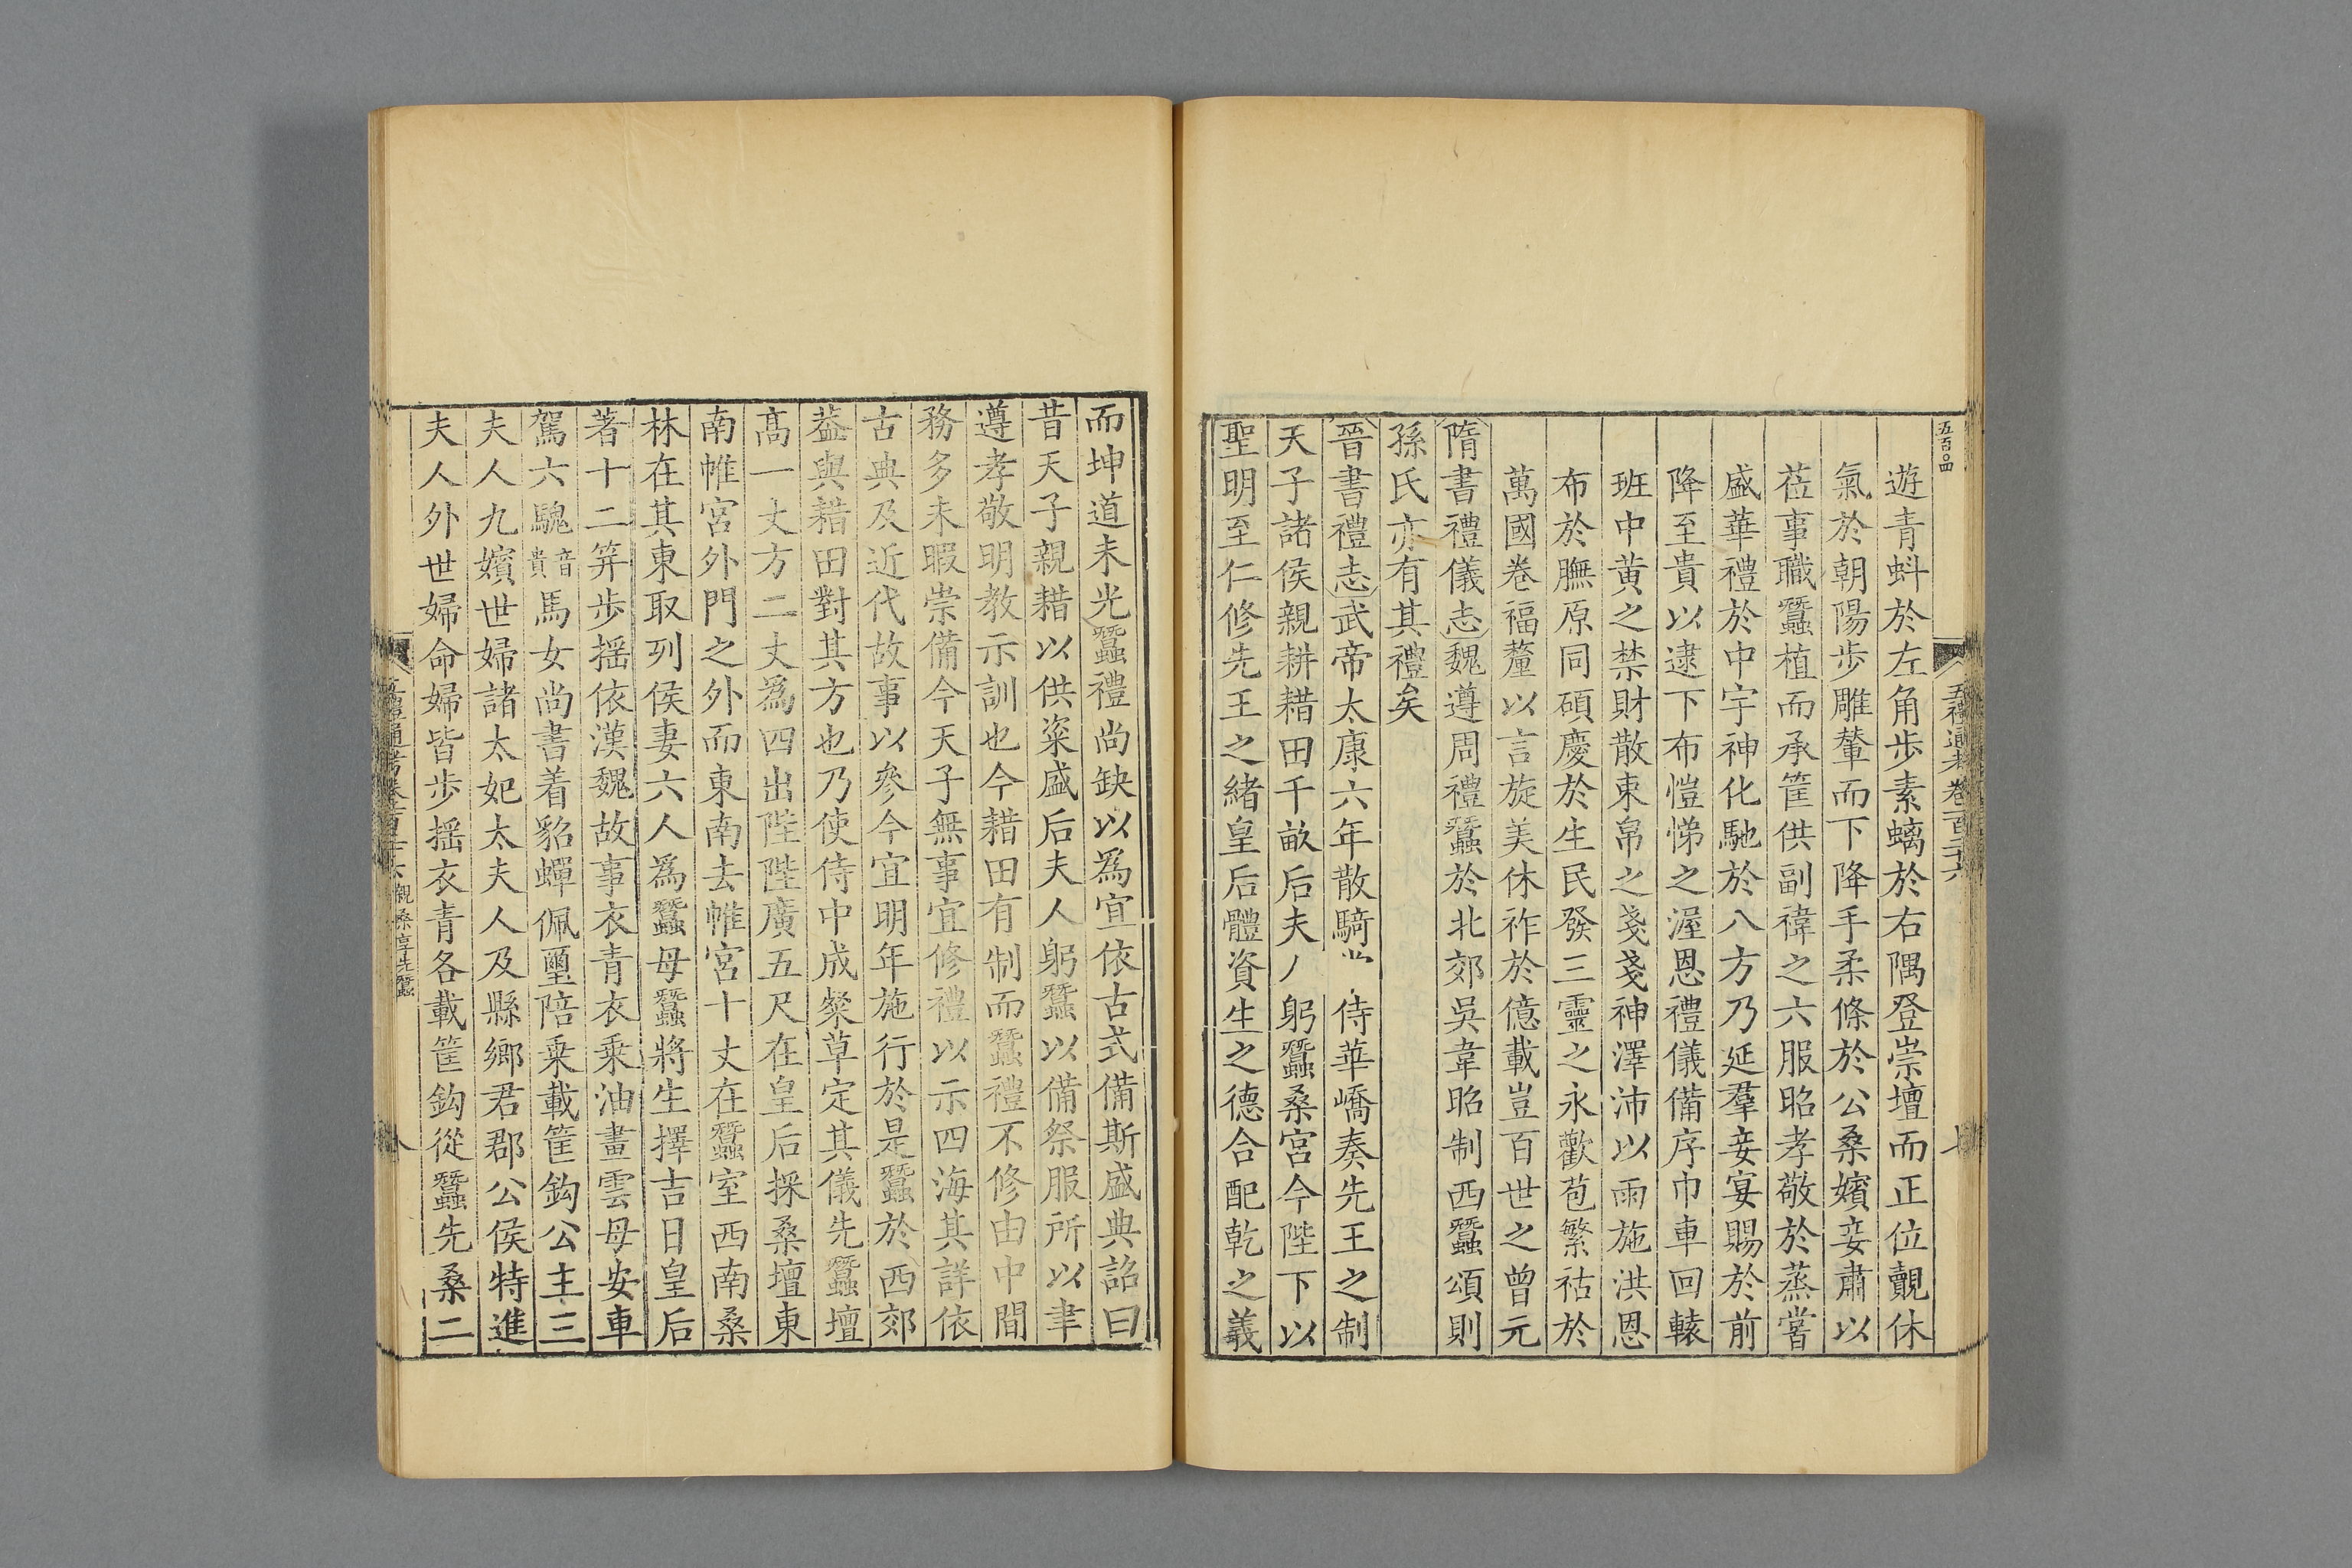 五百○四
五禮通考卷一百二十六
七
遊青蚪於左角步素螭於右隅登崇壇而正位覿休
氣於朝陽步雕輦而下降手柔條於公桑嬪妾肅以
莅事職蠶植而承筐供副褘之六服昭孝敬於蒸嘗
盛華禮於中宇神化馳於八方乃延羣妾宴賜於前
降至貴以逮下布愷悌之渥恩禮儀備序巾車回轅
班中黄之禁財散東帛之戔戔神澤沛以雨施洪恩
布於膴原同碩慶於生民發三靈之永歡苞繁祜於
萬國卷福釐以言旋美休祚於億載豈百世之曾元
隋書禮儀志魏遵周禮蠶於北郊吳韋昭制西蠶頌則
孫氏亦有其禮矣
晉書禮志武帝太康六年散騎侍華嶠奏先王之制
天子諸侯親耕耤田千畝后夫躬蠶桑宮今陛下以
聖明至仁修先王之緒皇后體資生之德合配乾之義
而坤道未光蠶禮尚缺以爲宜依古式備斯盛典詔曰
昔天子親耤以供粢盛后夫人躬蠶以備祭服所以聿
遵孝敬明教示訓也今耤田有制而蠶禮不修由中間
務多未暇崇備今天子無事宜修禮以示四海其詳依
古典及近代故事以參今宜明年施行於是蠶於西郊
葢與耤田對其方也乃使侍中成粲草定其儀先蠶壇
高一丈方二丈爲四出陛陛廣五尺在皇后採桑壇東
南帷宮外門之外而東南去帷宮十丈在蠶室西南桑
林在其東取列侯妻六人爲蠶母蠶將生擇吉日皇后
著十二笄步摇依漢魏故事衣青衣乘油畫雲母安車
駕六騩音貴馬女尚書着貂蟬佩璽陪乘載筐鈎公主三
夫人九嬪世婦諸太妃太夫人及縣鄉君郡公侯特進
夫人外世婦命婦皆步摇衣青各載筐鈎從蠶先桑二
五禮通考卷一百二十六 親桑享先蠶
八